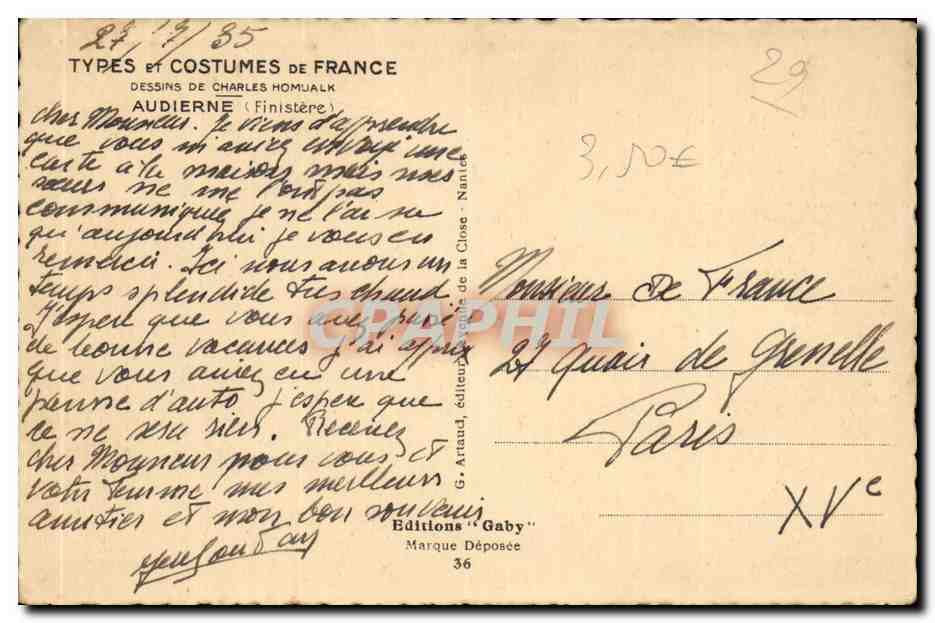 27/7/35
TYPES ET COSTUMES DE FRANCE
DESSINS DE CHARLES HOMUALK
AUDIERNE (Finistère)
cher Monsieur. Je viens d'apprendre
que vous m'aviez envoyé une
carte à la maison mais mes
sœurs ne me l'ont pas
communiquée je ne l'ai su
qu'aujourd'hui je vous en
remercie. Ici nous avons un
temps splendide très chaud.
J'espère que vous avez passé
de bonne vacances j'ai appris
que vous aviez eu une
panne d'auto j'espère que
ce ne sera rien. Recevez
cher Monsieur pour vous et
votre femme mes meilleurs
amitiés et mon bon souvenir
G. Artaud, éditeur, avenue de la Close - Nantes
29
3,50€
Monsieur De France
27 Quai de Grenelle
Paris
XVe
CPAPHIL
Editions "Gaby"
Marque Déposée
36